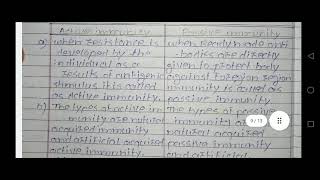 Active immunity Passive immunity
a) when resistance is when ready made anti
developed by the -bodies are directly
individual as a given to protect body
results of antigenic against foreign
stimulus it is called immunity is called as
as active immunity. passive immunity
b) The types of active im The types of passive
munity are natural immunity are
acquired immunity natural acquired
and artificial acquired passive immunity
active immunity. and artificial
9/13